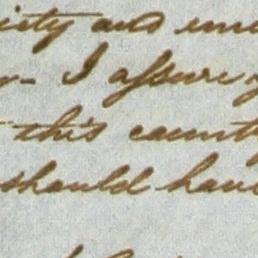 iety and
I assure
this count
should have